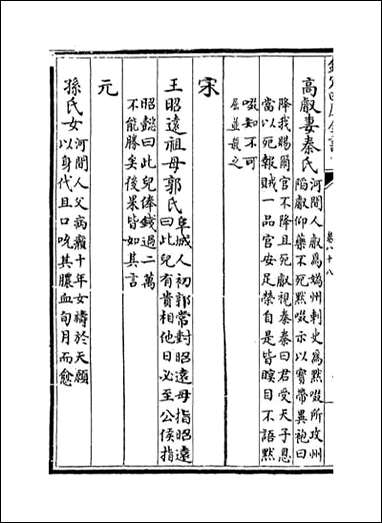 卷六十八
高叡妻秦氏
河間人叡爲趙州刺史爲黙啜所攻州
陷叡仰藥不死黙啜示以寳帶異袍曰
降我賜爾官不降且死叡視秦秦曰君受天子恩
當以死報賊一品官安足榮自是皆瞑目不語黙
啜知不可
屈並殺之
宋
王昭遠祖母郭氏
阜城人初郭常對昭遠母指昭遠
曰此兒有貴相他日必至公侯指
昭懿曰此兒俸錢過二萬
不能勝矣後果皆如其言
元
孫氏女
河間人父病癩十年女禱於天願
以身代且口吮其膿血旬月而愈